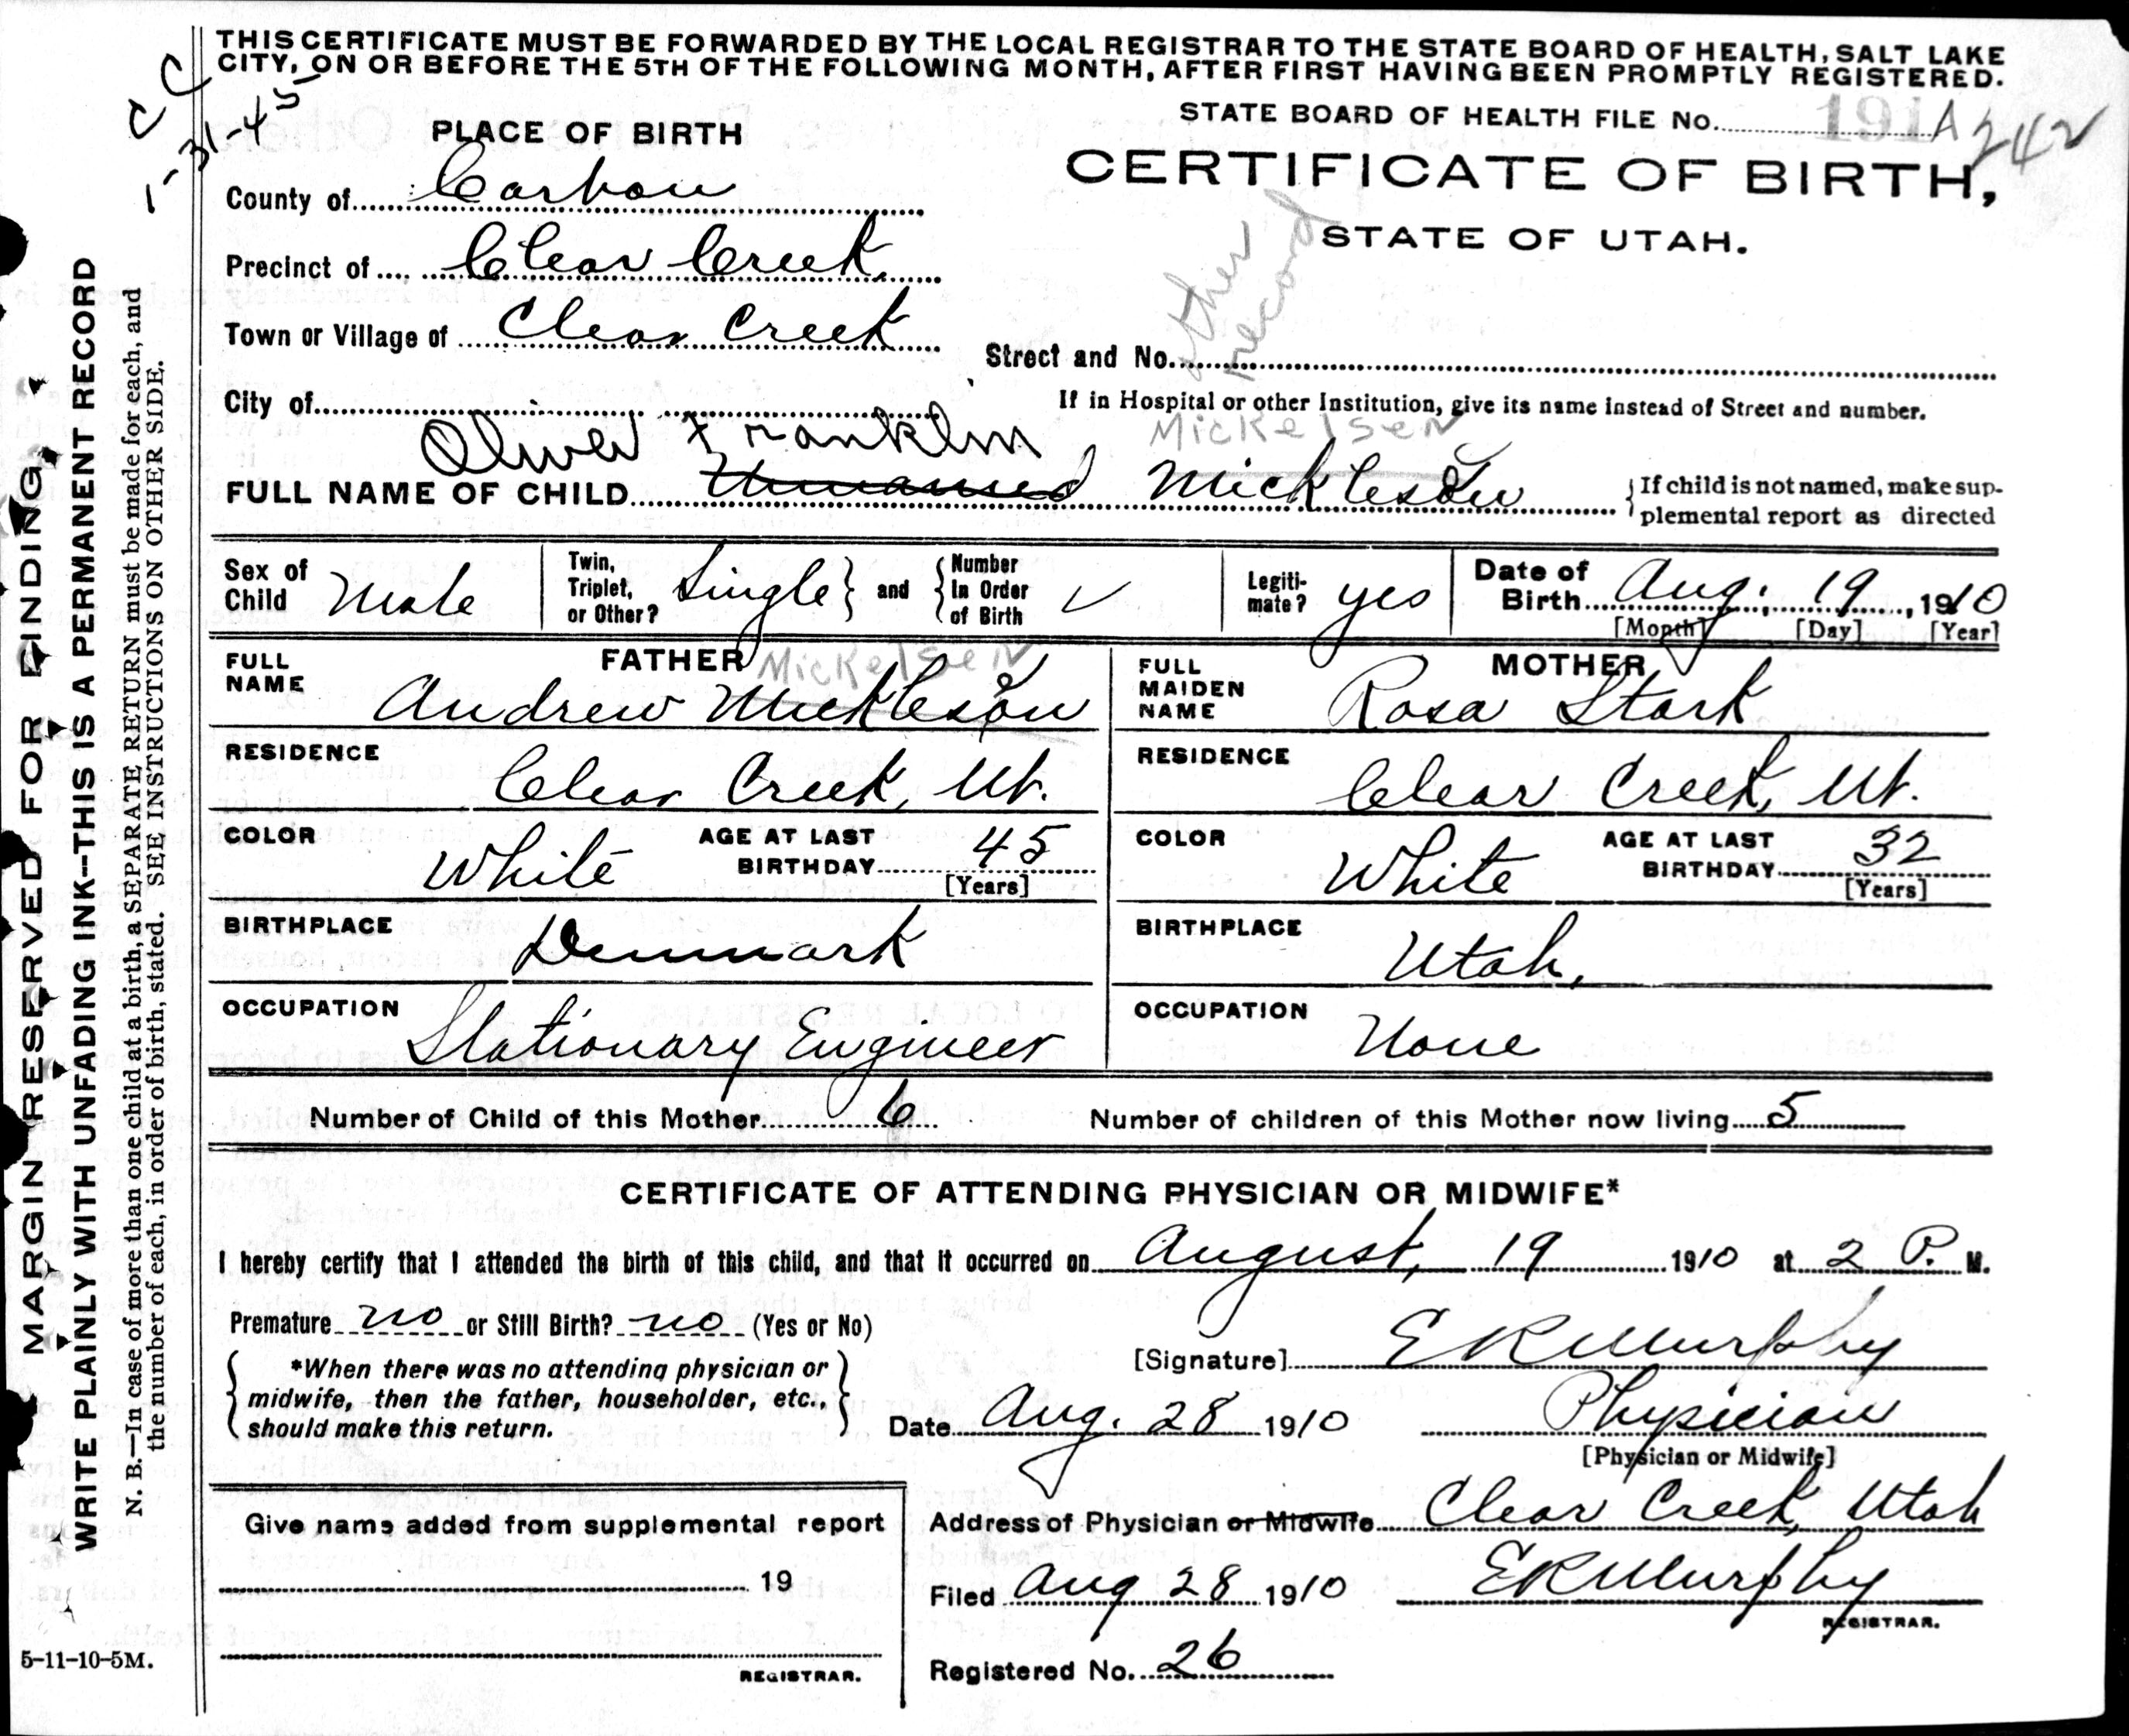 THIS CERTIFICATE MUST BE FORWARDED BY THE LOCAL REGISTRAR TO THE STATE BOARD OF HEALTH, SALT LAKE
CITY, ON OR BEFORE THE 5TH OF THE FOLLOWING MONTH, AFTER FIRST HAVING BEEN PROMPTLY REGISTERED.
CC
1-31-45
STATE BOARD OF HEALTH FILE No. 191 A 242
PLACE OF BIRTH
CERTIFICATE OF BIRTH,
STATE OF UTAH.
County of Carbon
Precinct of Clear Creek
Town or Village of Clear Creek
other record
Street and No.
City of
If in Hospital or other Institution, give its name instead of Street and number.
Oliver Franklin Mickelsen
FULL NAME OF CHILD Unnamed Mickleson
If child is not named, make sup-
plemental report as directed
Sex of Child Male
Twin, Triplet, or Other? Single and Number In Order of Birth ✓
Legiti-mate? yes
Date of Birth Aug. 19, 1910
[Month] [Day] [Year]
FATHER Mickelsen
FULL NAME Andrew Mickleson
RESIDENCE Clear Creek, Ut.
COLOR White AGE AT LAST BIRTHDAY 45
[Years]
BIRTHPLACE Denmark
OCCUPATION Stationary Engineer
MOTHER
FULL MAIDEN NAME Rosa Stark
RESIDENCE Clear Creek, Ut.
COLOR White AGE AT LAST BIRTHDAY 32
[Years]
BIRTHPLACE Utah,
OCCUPATION None
Number of Child of this Mother 6 Number of children of this Mother now living 5
CERTIFICATE OF ATTENDING PHYSICIAN OR MIDWIFE*
I hereby certify that I attended the birth of this child, and that it occurred on August, 19 1910 at 2 P. M.
Premature no or Still Birth? no (Yes or No)
*When there was no attending physician or
midwife, then the father, householder, etc.,
should make this return.
[Signature] E R Murphy
Date Aug. 28 1910 Physician
[Physician or Midwife]
Give name added from supplemental report
19
REGISTRAR.
Address of Physician or Midwife Clear Creek, Utah
Filed Aug 28 1910 E R Murphy
REGISTRAR.
Registered No. 26
MARGIN RESERVED FOR BINDING.
WRITE PLAINLY WITH UNFADING INK--THIS IS A PERMANENT RECORD
N. B.—In case of more than one child at a birth, a SEPARATE RETURN must be made for each, and
the number of each, in order of birth, stated. SEE INSTRUCTIONS ON OTHER SIDE.
5-11-10-5M.